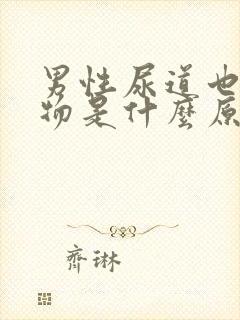 男性尿道也
物是什麼原
齊琳